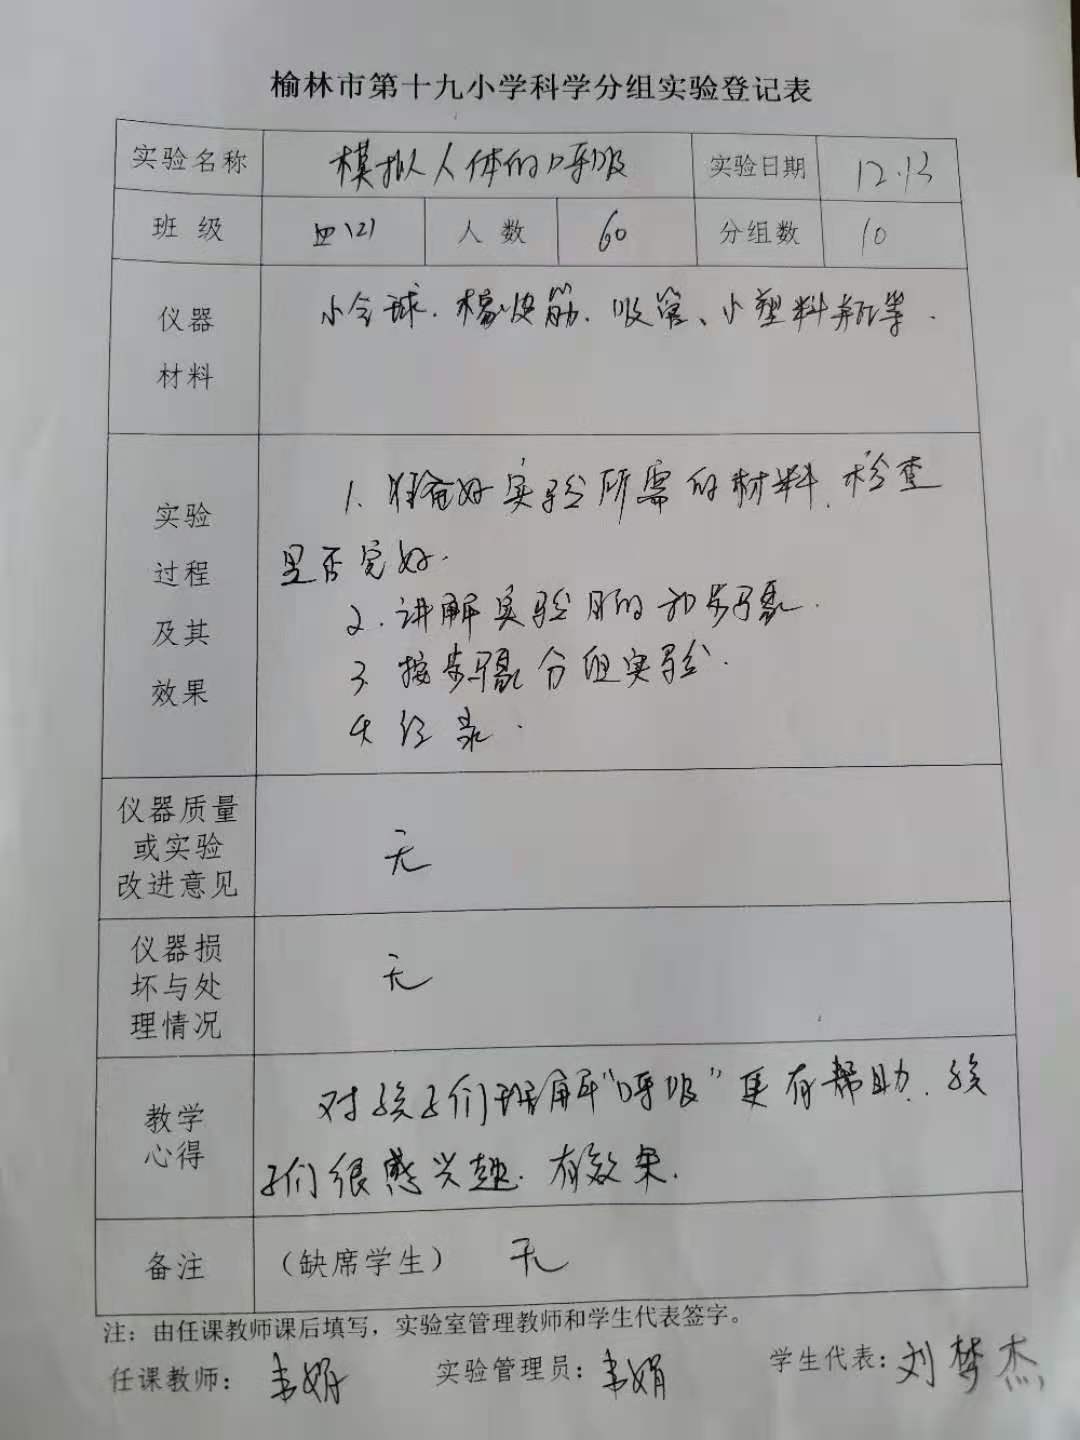 榆林市第十九小学科学分组实验登记表
实验名称 模拟人体的呼吸 实验日期 12.13
班 级 四(2) 人 数 60 分组数 10
仪器 小气球.橡皮筋.吸管、小塑料瓶等.
材料
实验 1.准备好实验所需的材料.检查
过程 是否完好.
及其 2.讲解实验目的和步骤.
效果 3.按步骤分组实验.
4.记录.
仪器质量
或实验 无
改进意见
仪器损
坏与处 无
理情况
教学 对孩子们理解“呼吸”更有帮助.孩
心得 子们很感兴趣.有效果.
备注 (缺席学生) 无
注:由任课教师课后填写,实验室管理教师和学生代表签字。
任课教师: 娟 实验管理员: 娟 学生代表:刘梦杰